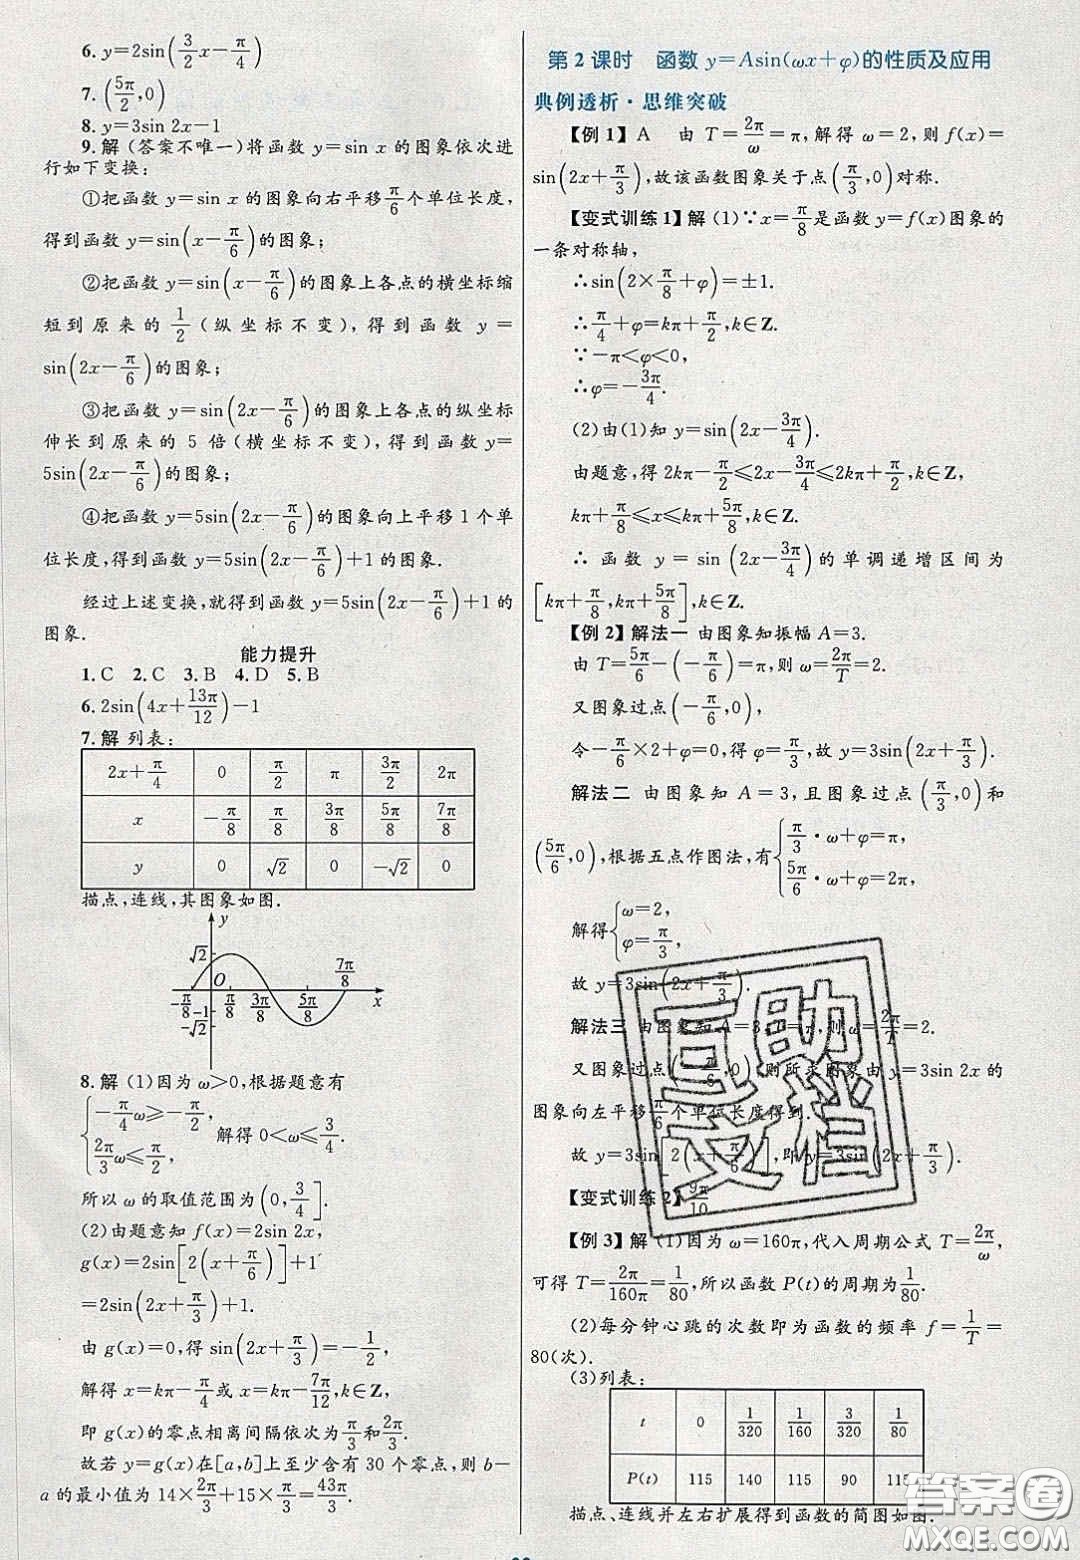 6. y=2sin(3/2 x−π/4)
7. (5π/2,0)
8. y=3sin 2x−1
9. 解 (答案不唯一)将函数 y=sin x 的图象依次进
行如下变换:
①把函数 y=sin x 的图象向右平移π/6个单位长度,
得到函数 y=sin(x−π/6)的图象;
②把函数 y=sin(x−π/6)的图象上各点的横坐标缩
短到原来的 1/2 (纵坐标不变),得到函数 y=
sin(2x−π/6)的图象;
③把函数 y=sin(2x−π/6)的图象上各点的纵坐标
伸长到原来的 5 倍(横坐标不变),得到函数 y=
5sin(2x−π/6)的图象;
④把函数 y=5sin(2x−π/6)的图象向上平移1个单
位长度,得到函数 y=5sin(2x−π/6)+1的图象.
经过上述变换,就得到函数 y=5sin(2x−π/6)+1的
图象.
能力提升
1. C 2. C 3. B 4. D 5. B
6. 2sin(4x+13π/12)−1
7. 解 列表:
2x+π/4 0 π/2 π 3π/2 2π
x −π/8 π/8 3π/8 5π/8 7π/8
y 0 √2 0 −√2 0
描点,连线,其图象如图.
y
√2
O 7π/8
−π/8 π/8 3π/8 5π/8 x
−1
−√2
8. 解 (1)因为 ω>0,根据题意有
{−π/4 ω≥−π/2,
2π/3 ω≤π/2, 解得 0<ω≤3/4.
所以 ω 的取值范围为(0,3/4].
(2)由题意知 f(x)=2sin 2x,
g(x)=2sin[2(x+π/6)]+1
=2sin(2x+π/3)+1.
由 g(x)=0,得 sin(2x+π/3)=−1/2,
解得 x=kπ−π/4或 x=kπ−7π/12,k∈Z,
即 g(x)的零点相离间隔依次为π/3和2π/3.
故若 y=g(x)在[a,b]上至少含有 30 个零点,则 b−
a 的最小值为 14×2π/3+15×π/3=43π/3.
第 2 课时 函数 y=Asin(ωx+φ)的性质及应用
典例透析·思维突破
【例 1】 A 由 T=2π/ω=π,解得 ω=2,则 f(x)=
sin(2x+π/3),故该函数图象关于点(π/3,0)对称.
【变式训练 1】 解 (1)∵x=π/8是函数 y=f(x)图象的
一条对称轴,
∴sin(2×π/8+φ)=±1.
∴π/4+φ=kπ+π/2,k∈Z.
∵−π<φ<0,
∴φ=−3π/4.
(2)由(1)知 y=sin(2x−3π/4).
由题意,得 2kπ−π/2≤2x−3π/4≤2kπ+π/2,k∈Z,
kπ+π/8≤x≤kπ+5π/8,k∈Z.
∴函数 y=sin(2x−3π/4)的单调递增区间为
[kπ+π/8,kπ+5π/8],k∈Z.
【例 2】 解法一 由图象知振幅 A=3.
由 T=5π/6−(−π/6)=π,则 ω=2π/T=2.
又图象过点(−π/6,0),
令−π/6×2+φ=0,得 φ=π/3,故 y=3sin(2x+π/3).
解法二 由图象知 A=3,且图象过点(π/3,0)和
(5π/6,0),根据五点作图法,有{π/3·ω+φ=π,
5π/6·ω+φ=2π,
解得{ω=2,
φ=π/3,
故 y=3sin(2x+π/3).
解法三 由图象知 A=3,T=π,则 ω=2π/T=2.
又图象过点(−π/6,0),则所求图象由 y=3sin 2x 的
图象向左平移π/6个单位长度得到.
故 y=3sin[2(x+π/6)],即 y=3sin(2x+π/3).
【变式训练 2】 9π/10
【例 3】 解 (1)因为 ω=160π,代入周期公式 T=2π/ω,
可得 T=2π/160π=1/80,所以函数 P(t)的周期为1/80.
(2)每分钟心跳的次数即为函数的频率 f=1/T=
80(次).
(3)列表:
t 0 1/320 1/160 3/320 1/80
P(t) 115 140 115 90 115
描点、连线并左右扩展得到函数的简图如图.
互助文档
答案圈
MXQE.COM